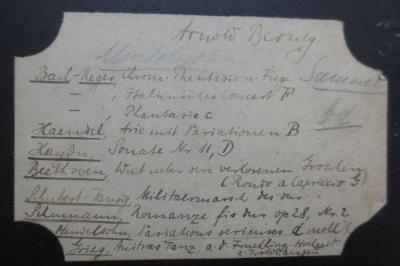 Arnold Berney
Mendelssohn
Bach-Reger, Chrom. Phantasie u Fuge
Sammel
— , Italienisches Concert F
bd
— , Phantasie c
Haendel, Arie mit Variationen B
Haydn, Sonate Nr. 11, D
Beethoven, Wut ueber den verlorenen Groschen
(Rondo a Capriccio G)
Schubert-Tausig, Militaermarsch des dur
Schumann, Romanze fis dur op 28, Nr. 2
Mendelsohn, Variations serieuses d moll
Grieg, Anitras Tanz, a. d. Fruehling, Hochzeit
a. Troldhaugen